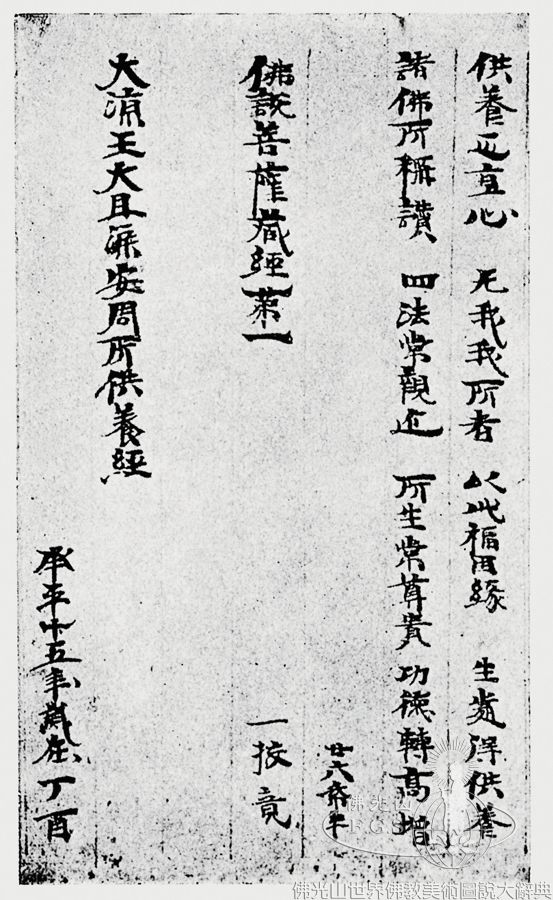 供養正直心 无我我所者 以此福因緣 生處得供養
諸佛所稱讚 四法常親近 所生常尊貴 功德轉高增
廿六帋半
佛說菩薩藏經第一 一挍竟
大涼王大且渠安周所供養經
承平十五年歲在丁酉
佛光山
F.G.S.
佛光山世界佛教美術圖說大辭典